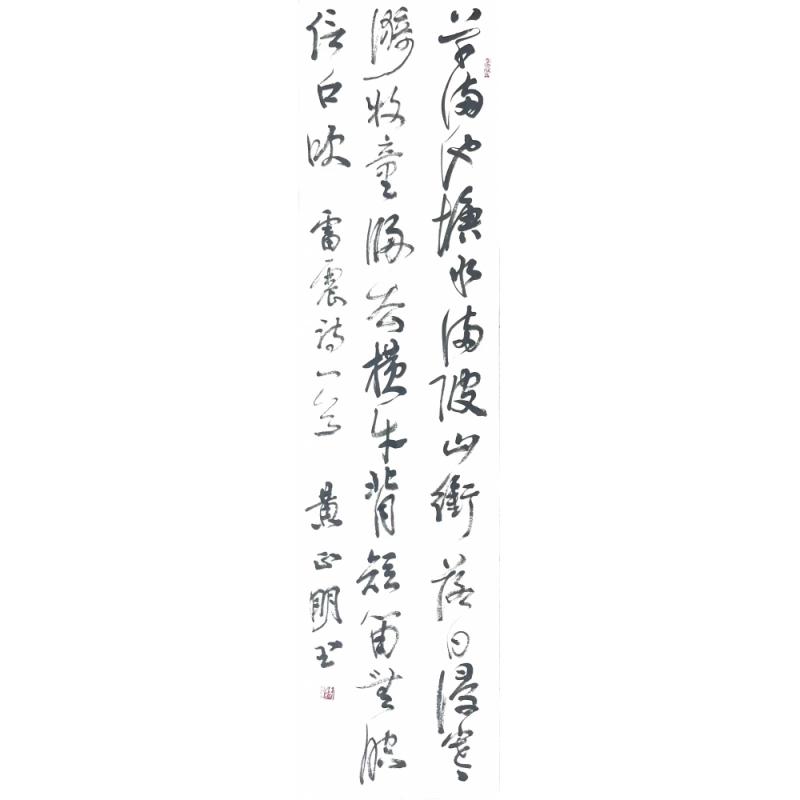 草满池塘水满陂山衔落日浸寒
漪牧童归去横牛背短笛无腔
信口吹 雷震诗一首 黄正明书